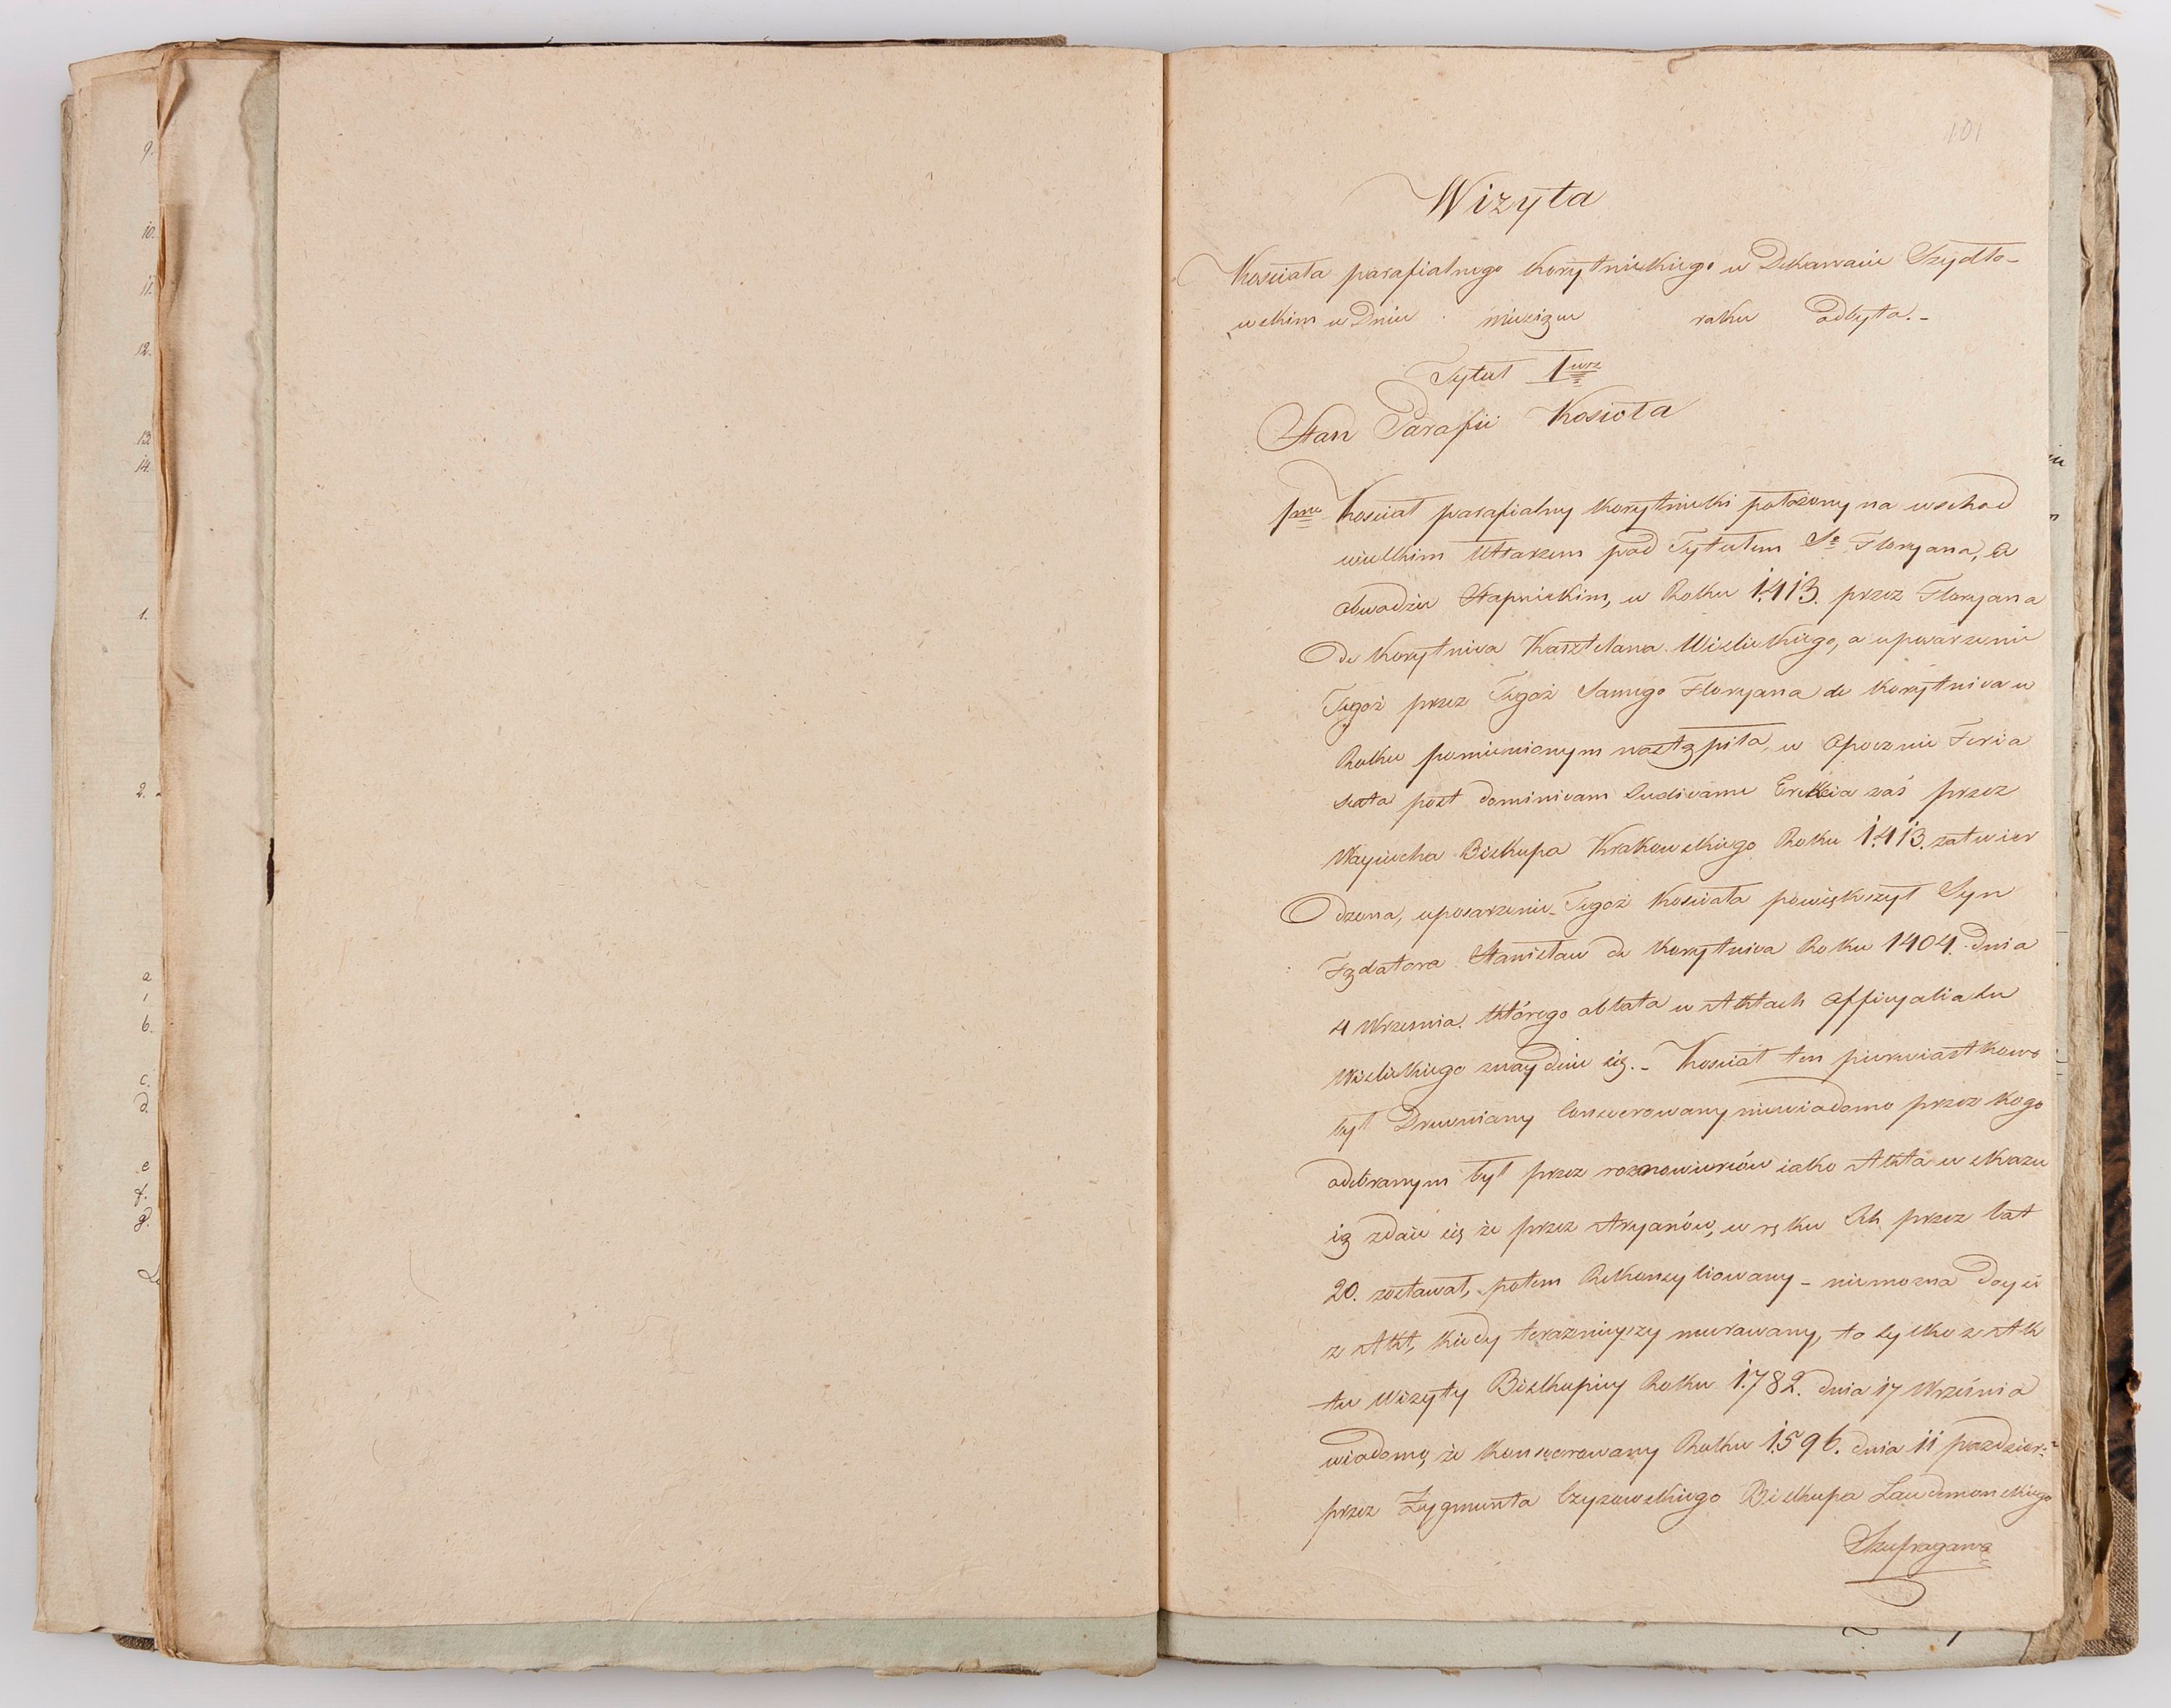 9.
10.
11.
12.
13
14.
1.
2.
a
b.
c.
d.
e
f.
g.
101
Wizyta
Kościoła parafialnego Korytnickiego w Dekanacie Szydło-
wskim w Dniu miesiącu roku odbyta.-
Tytuł 1wsz
Stan Parafii Kosioła
1mo Kościoł parafialny Korytnicki położony na wschod
wielkim Ołtarzem pod Tytułem So Floryana, a
obwodzie Stapnickim, w Roku 1413. przez Floryana
de Korytnica Kasztelana Wislickiego, a uposarzenie
Tegoż przez Tegoż Samego Floryana de Korytnica w
Roku pomienionym nastąpiła, w Opocznie Feria
sexta post dominicam Judicame Erekcia zaś przez
Woyciecha Biskupa Krakowskiego Roku 1413. zatwier
dzona, uposarzenie Tegoż Kościoła powiększył Syn
Fądatora Stanisław de Korytnica Roku 1404. dnia
4 Wrzesnia. którego oblata w Aktach Officyalialu
Wislickiego znayduie się.- Kościoł ten pierwiastkowo
był Drewniany Consecrowany niewiadomo przez Kogo
odebranym był przez roznowierców iako Akta wskazu
ią zdaie się że przez Aryanów, w ręku Ich przez lat
20. zostawał, potem Rekonsyliowany - niemozna doyść
z Akt, kiedy terazniejszy murowany, to tylko z Ak
tu Wizyty Biskupiey Roku 1782. dnia 17 Września
wiadomo, że Konsecrowany Roku 1596. dnia 11 pazdzier:
przez Zygmunta Czyzowskiego Biskupa Laudemonskiego
Szufragana